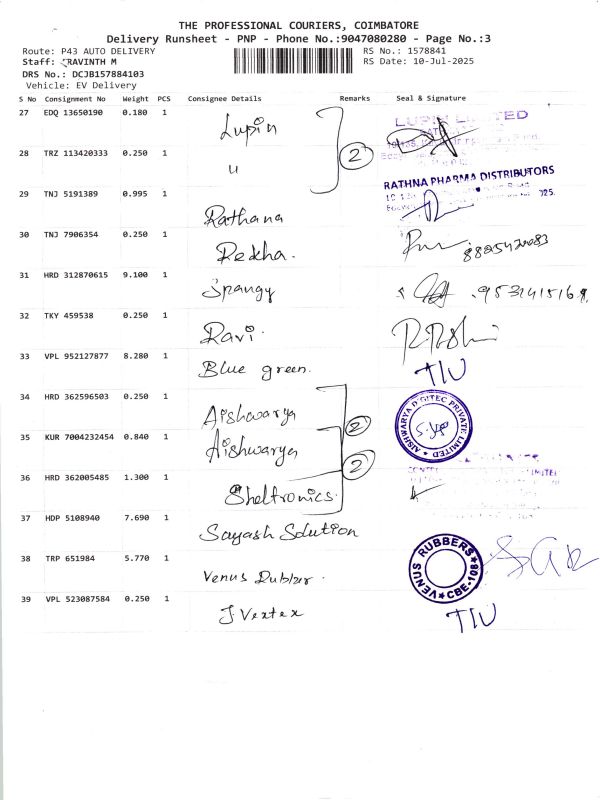 THE PROFESSIONAL COURIERS, COIMBATORE
Delivery Runsheet - PNP - Phone No.:9047080280 - Page No.:3
Route: P43 AUTO DELIVERY RS No.: 1578841
Staff: RAVINTH M RS Date: 10-Jul-2025
DRS No.: DCJB157884103
Vehicle: EV Delivery
S No Consignment No Weight PCS Consignee Details Remarks Seal & Signature
27 EDQ 13650190 0.180 1 Lupin LUPIN LIMITED
28 TRZ 113420333 0.250 1 u 2
29 TNJ 5191389 0.995 1 Rathana RATHNA PHARMA DISTRIBUTORS
30 TNJ 7906354 0.250 1 Rekha.
31 HRD 312870615 9.100 1 Spangy
32 TKY 459538 0.250 1 Ravi.
33 VPL 952127877 8.280 1 Blue green. TIU
34 HRD 362596503 0.250 1 Aishwarya AISHWARYA DIGITEC PRIVATE LIMITED
35 KUR 7004232454 0.840 1 Aishwarya 2
36 HRD 362005485 1.300 1 Sheltronics. 2
37 HDP 5108940 7.690 1 Sayash Solution
38 TRP 651984 5.770 1 Venus Rubber. VENUS RUBBERS CBE-108
39 VPL 523087584 0.250 1 J. Vertex TIU